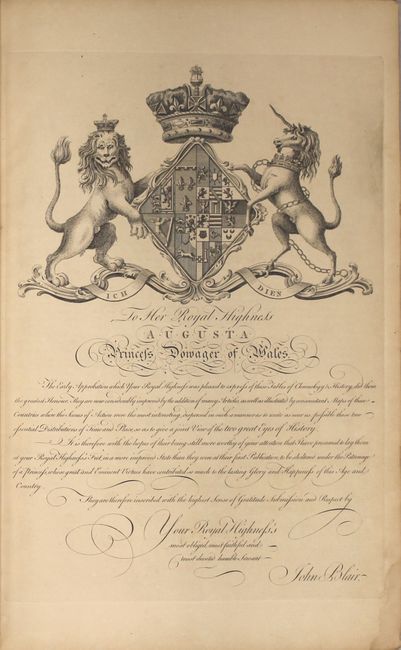 ICH
DIEN
To Her Royal Highness
AUGUSTA
Princess Dowager of Wales.
The Early Approbation which Your Royal Highness was pleased to express of these Tables of Chronology & History, did them
the greatest Honour. They are now considerably improved by the addition of many Articles as well as illustrated by concomitant Maps of those
Countries where the Scenes of Action were the most interesting, disposed in such a manner as to unite as near as possible those two
essential Distributions of Time and Place, so as to give a joint View of the two great Eyes of History.
It is therefore with the hopes of their being still more worthy of your attention that I have presumed to lay them
at your Royal Highness's Feet, in a more improved State than they were at their first Publication, to be sheltered under the Patronage
of a Princess whose great and Eminent Virtues have contributed so much to the lasting Glory and Happiness of this Age and
Country.
They are therefore inscribed with the highest Sense of Gratitude Submission and Respect by
Your Royal Highness's
most obliged most faithful and
most devoted humble Servant
John Blair.